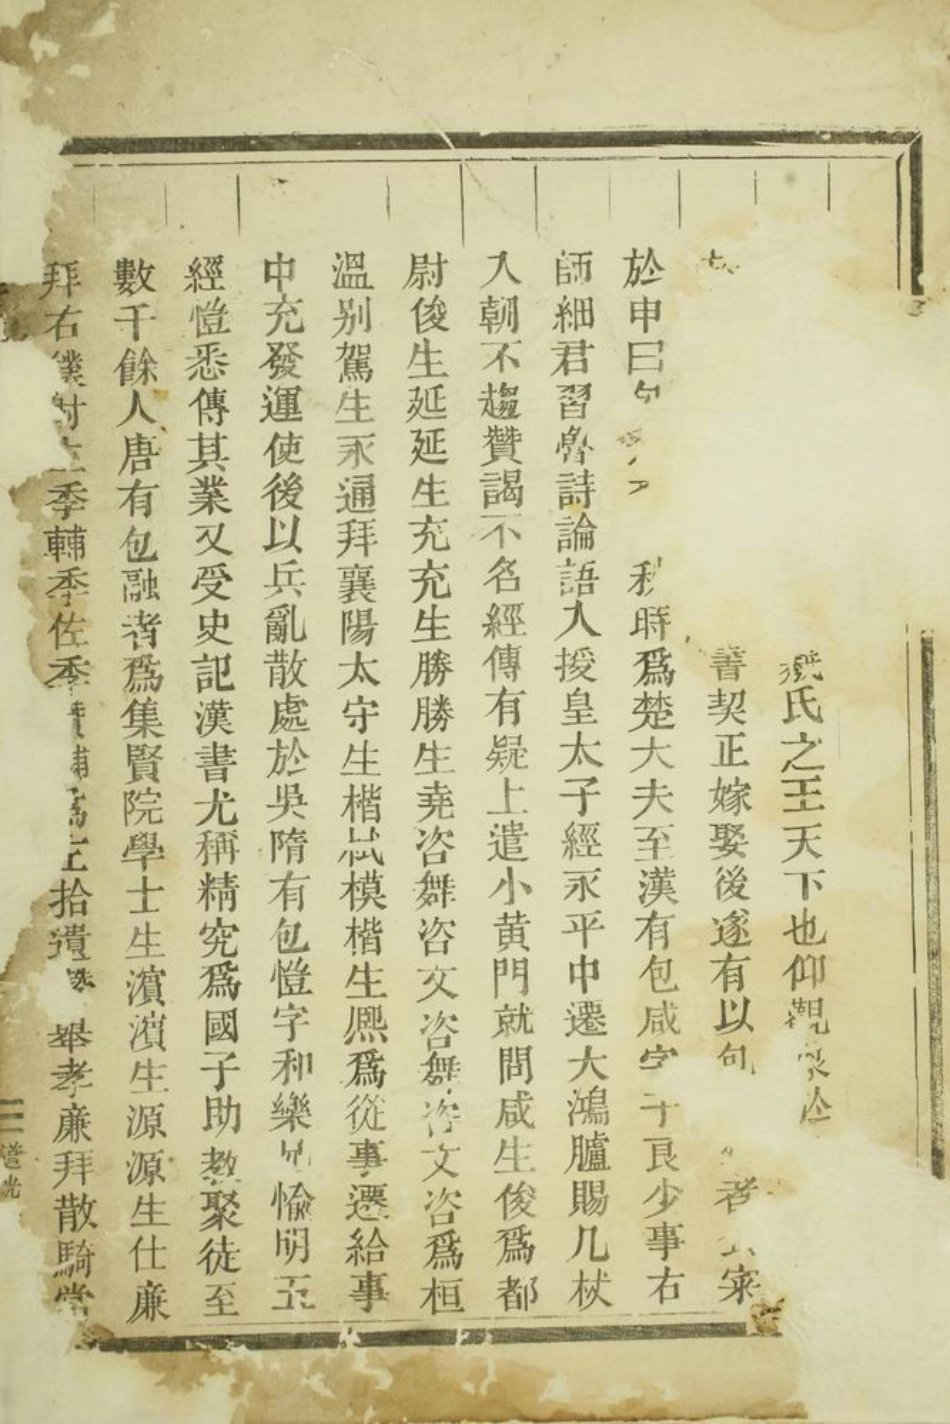 氏之王天下也仰觀
書契正嫁娶後遂有以 者 寀
於申曰 時爲楚大夫至漢有包咸字子良少事右
師細君習魯詩論語入授皇太子經永平中遷大鴻臚賜几杖
入朝不趨贊謁不名經傳有疑上遣小黄門就問咸生俊爲都
尉俊生延延生充充生勝勝生堯咨舞咨文咨舞咨文咨爲桓
溫别駕生永通拜襄陽太守生楷栻模楷生熈爲從事遷給事
中充發運使後以兵亂散處於吳隋有包愷字和樂兄愉明五
經愷悉傳其業又受史記漢書尤稱精究爲國子助教聚徒至
數千餘人唐有包融者爲集賢院學士生濵濵生源源生仕廉
拜右僕射 季輔季佐季 輔爲左拾遺 舉孝廉拜散騎常
道光